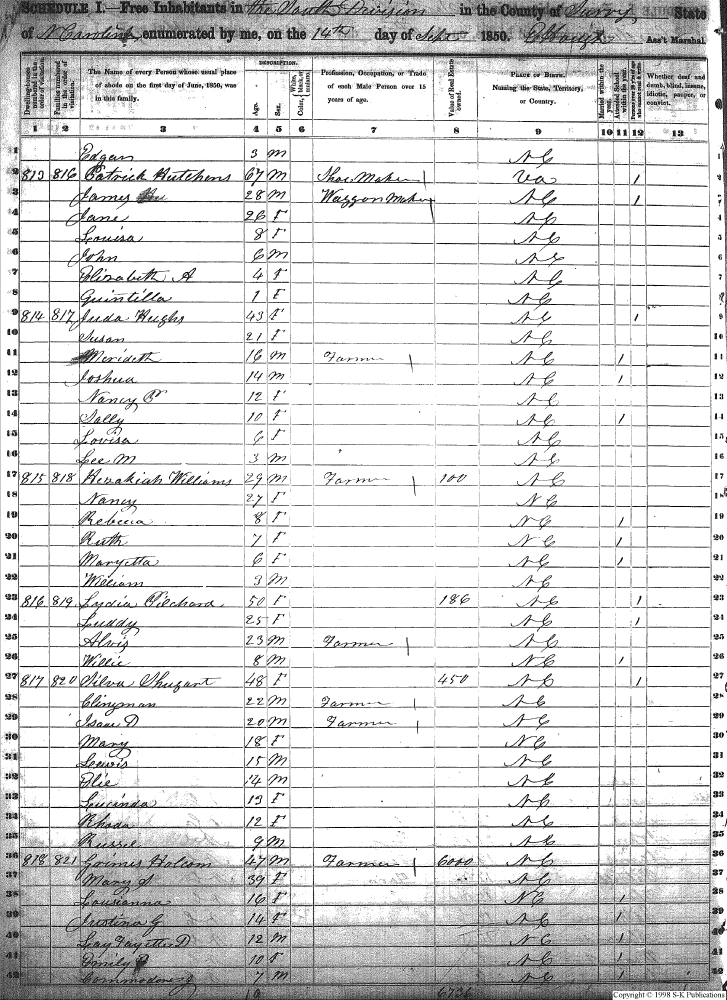 SCHEDULE I.—Free Inhabitants in the North Division in the County of Surry State
of N Carolina enumerated by me, on the 14th day of Sept 1850. Ass't Marshal.
Dwelling-houses numbered in the order of visitation.
Families numbered in the order of visitation.
The Name of every Person whose usual place of abode on the first day of June, 1850, was in this family.
DESCRIPTION.
Age.
Sex.
White, black, or mulatto.
Color,
Profession, Occupation, or Trade of each Male Person over 15 years of age.
Value of Real Estate owned.
PLACE OF BIRTH. Naming the State, Territory, or Country.
Married within the year.
Attended School within the year.
Whether deaf and dumb, blind, insane, idiotic, pauper or convict.
1 2 3 4 5 6 7 8 9 10 11 12 13
1 Edgar 3 M NC
2 813 816 Patrick Hutchens 67 M Shoe Maker Va 1
3 James 28 M Waggon Maker NC 1
4 Jane 26 F NC
5 Louisa 8 F NC
6 John 6 M NC
7 Elizabeth A 4 F NC
8 Quintilla 1 F NC
9 814 817 Juda Hughs 43 F NC 1
10 Susan 21 F NC
11 Merideth 16 M Farmer NC 1
12 Joshua 14 M NC 1
13 Nancy P 12 F NC
14 Sally 10 F NC 1
15 Lovisa 6 F NC
16 Lee M 3 M NC
17 815 818 Hezakiah Williams 29 M Farmer 100 NC
18 Nancy 27 F NC
19 Rebecca 8 F NC 1
20 Ruth 7 F NC 1
21 Maryetta 6 F NC 1
22 William 3 M NC
23 816 819 Lydia Pilchard 50 F 186 NC 1
24 Luddy 25 F NC 1
25 Alvis 23 M Farmer NC
26 Willie 8 M NC 1
27 817 820 Silva Shugart 48 F 450 NC 1
28 Clingman 22 M Farmer NC
29 Isaac D 20 M Farmer NC
30 Mary 18 F NC
31 Lewis 15 M NC
32 Elie 14 M NC
33 Lucinda 13 F NC
34 Rhoda 12 F NC
35 9 M NC
36 818 821 Grimes Holcom 47 M Farmer 6000 NC
37 Mary S 39 F NC
38 Lousianna 16 F NC 1
39 Justina G 14 F NC 1
40 Lay Fayette D 12 M NC 1
41 Emily 10 F NC 1
42 Commodore 7 M NC 1
6736
Copyright © 1998 S-K Publications